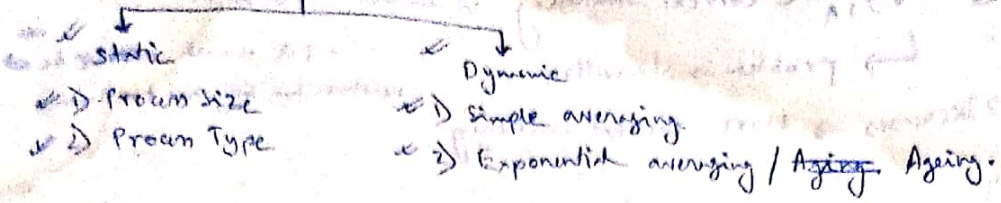 Static
1) Process Size
2) Process Type
Dynamic
1) Simple averaging.
2) Exponential averaging / Aging. Ageing.